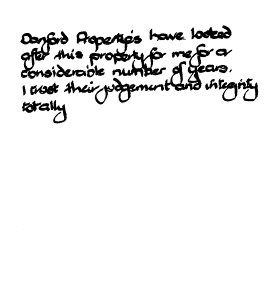 Danford Property's have looked
after this property for me for a
considerable number of years.
I trust their judgement and integrity
totally